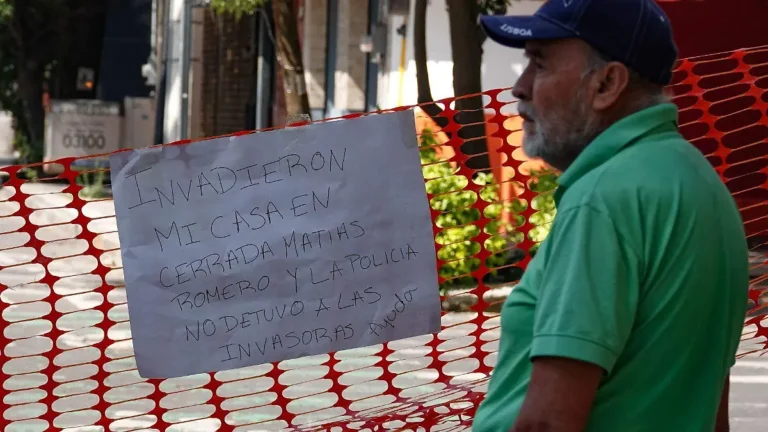 LISBOA
INVADIERON
MI CASA EN
CERRADA MATIAS
ROMERO Y LA POLICIA
NO DETUVO A LAS
INVASORAS Ayuda